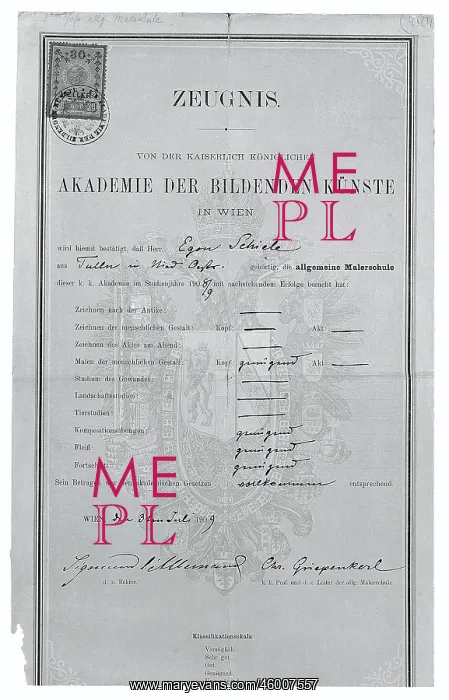 30
30
ZEUGNIS.
VON DER KAISERLICH KÖNIGLICHEN
AKADEMIE DER BILDENDEN KÜNSTE
IN WIEN
wird hiemit bestätigt, daß Herr Egon Schiele
aus Tulln in Nied. Oestr. gebürtig, die allgemeine Malerschule
dieser k. k. Akademie im Studienjahre 1908/9 mit nachstehendem Erfolge besucht hat:
Zeichnen nach der Antike:
Zeichnen der menschlichen Gestalt: Kopf: Akt:
Zeichnen des Aktes am Abend:
Malen der menschlichen Gestalt: Kopf genügend Akt
Studium des Gewandes:
Landschaftsstudien:
Tierstudien:
Kompositionsübungen: genügend
Fleiß: genügend
Fortschritt: genügend
Sein Betragen den akademischen Gesetzen vollkommen entsprechend.
WIEN, den 3ten Juli 1909
Sigmund l'Allemand Chr. Griepenkerl
d. z. Rektor. k. k. Prof. und d. z. Leiter der allg. Malerschule.
Klassifikationsskala:
Vorzüglich
Sehr gut
Gut
Genügend
ME
PL
ME
PL
www.maryevans.com/46007557